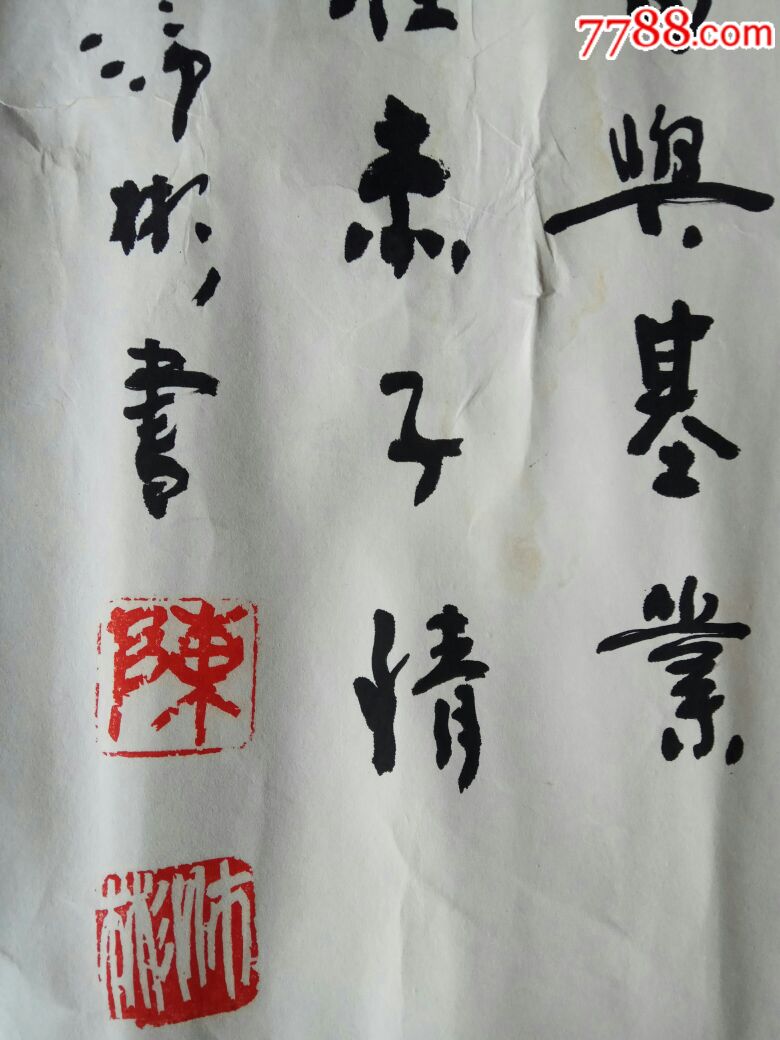 7788.com
興基業
赤子情
沛彬書
陳
沛彬